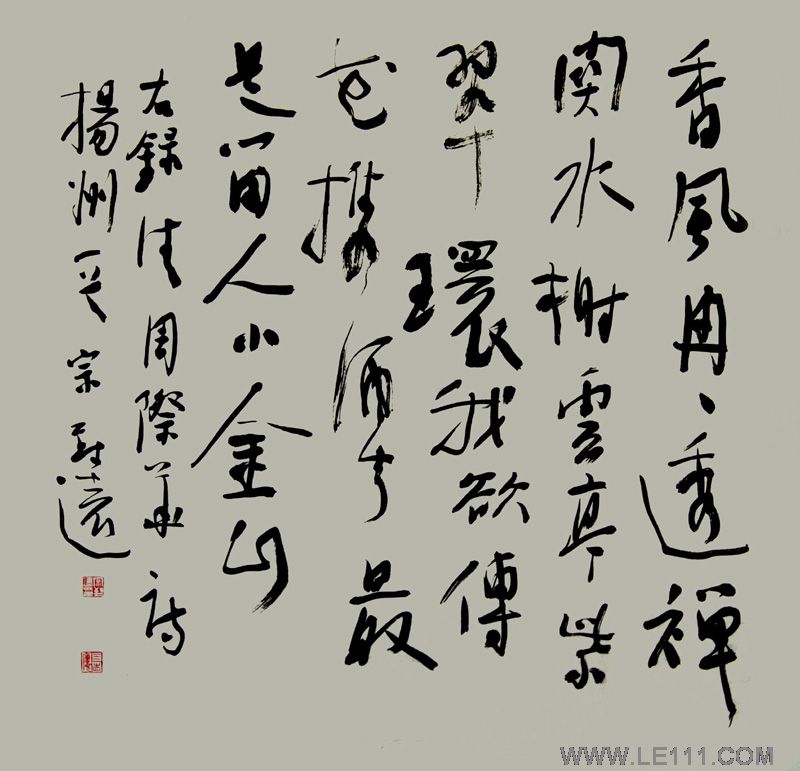 香風冉〻透禪
関水榭雲亭紫
翠環我欲傳
花攜酒去最
是留人小金山
右録清周際華詩
揚州 宗遠
WWW.LE111.COM